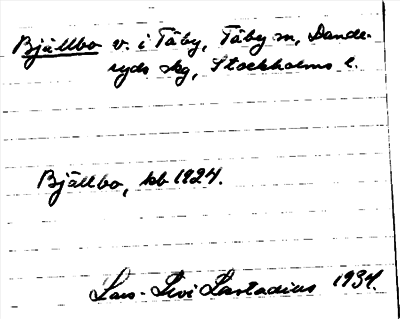 Bjällbo v. i Täby, Täby sn, Dande-
ryds skg, Stockholms l.
Bjällbo, kb 1924.
Lars-Levi Læstadius 1934.